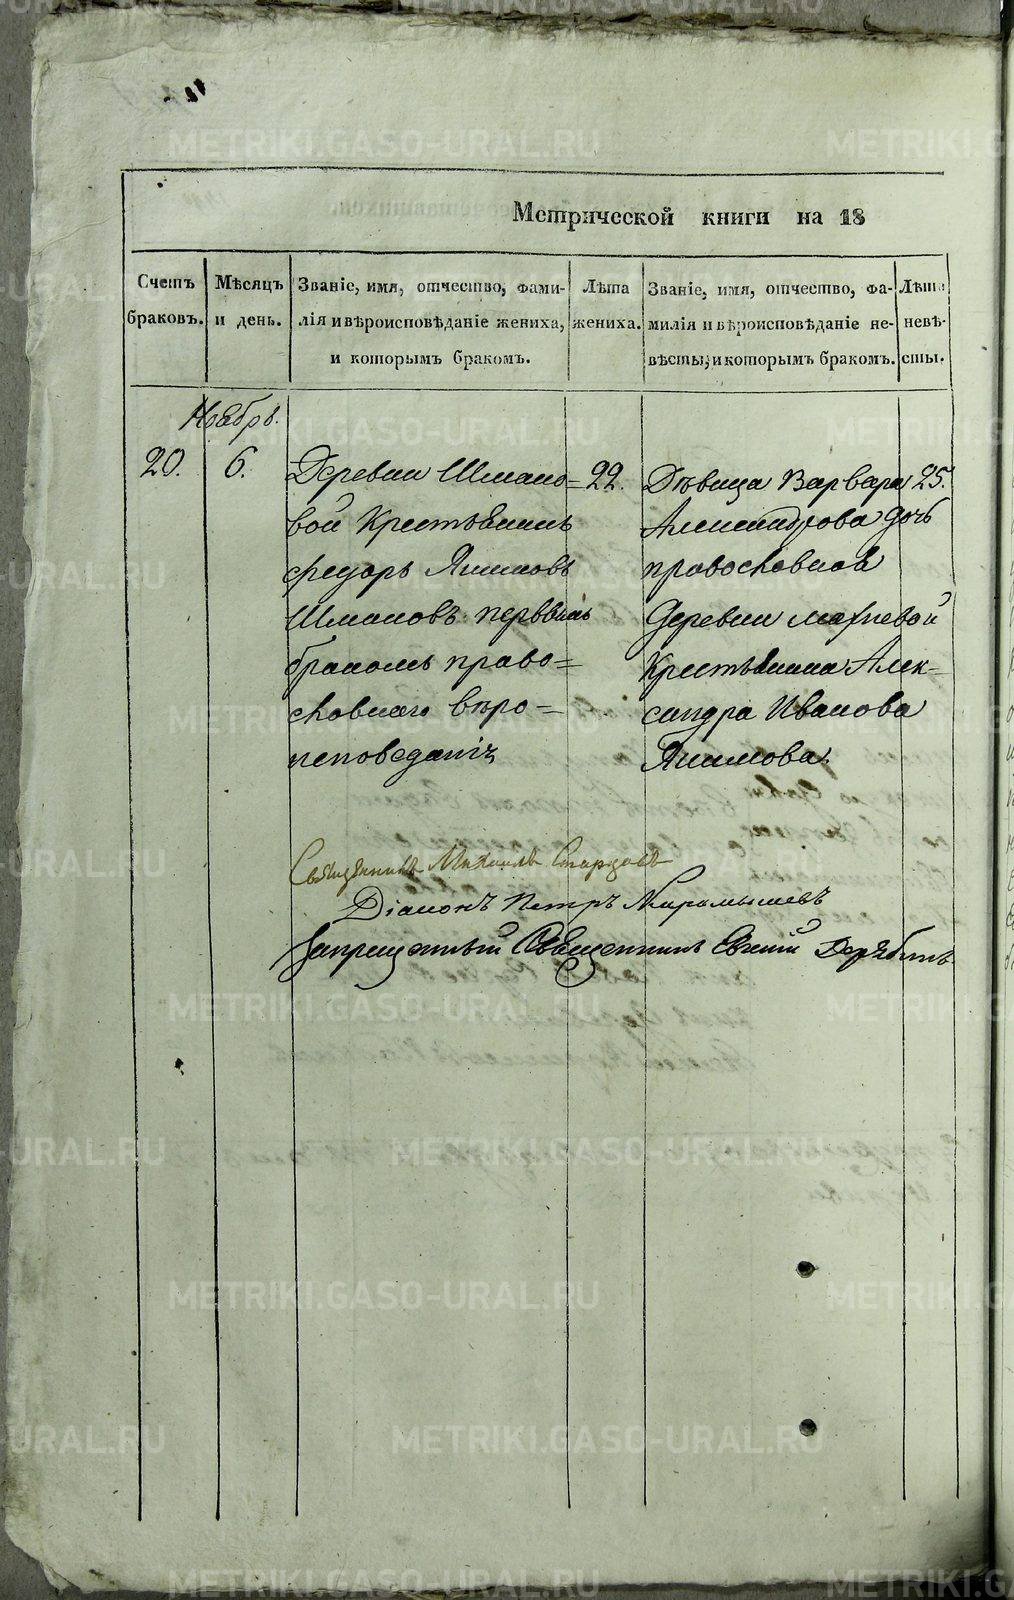 Метрической книги на 18
Счетъ браковъ.
Мѣсяцъ и день.
Званіе, имя, отчество, фами-
лія и вѣроисповѣданіе жениха,
и которымъ бракомъ.
Лѣта жениха.
Званіе, имя, отчество, фа-
милія и вѣроисповѣданіе не-
вѣсты, и которымъ бракомъ.
Лѣта невѣ-
сты.
Ноябрь.
20. 6.
Деревни Шмако=
вой Крестьянинъ
Федоръ Якимовъ
Шмаковъ первымъ
бракомъ право=
славнаго вѣро=
исповеданія
22.
Дѣвица Варвара
Александрова дочь
православная
деревни
Крестьянина Алек-
сандра Иванова
Якимова.
25.
Священникъ Михаилъ
Діаконъ Петръ Карамышевъ
Запрещенный Священникъ
METRIKI.GASO-URAL.RU